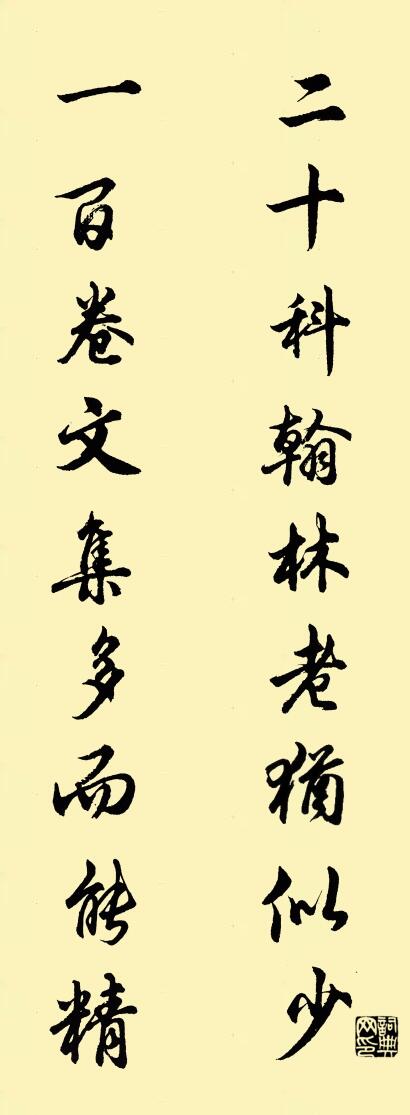 二十科翰林老猶似少
一百卷文集多而能精
詞典网印